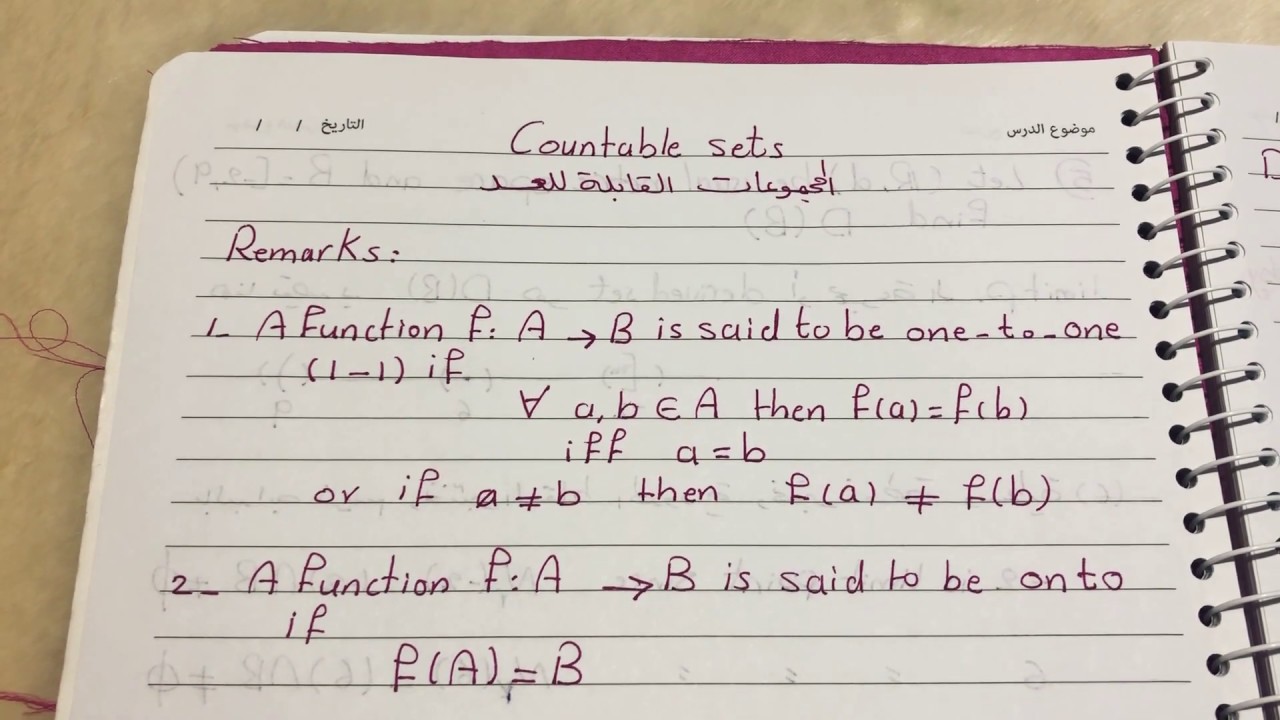 موضوع الدرس
التاريخ / /
Countable sets
المجموعات القابلة للعد
Remarks:
1- A Function f: A → B is said to be one-to-one
(1-1) if
∀ a, b ∈ A then f(a) = f(b)
iff a = b
or if a ≠ b then f(a) ≠ f(b)
2- A function f: A → B is said to be onto
if
f(A) = B